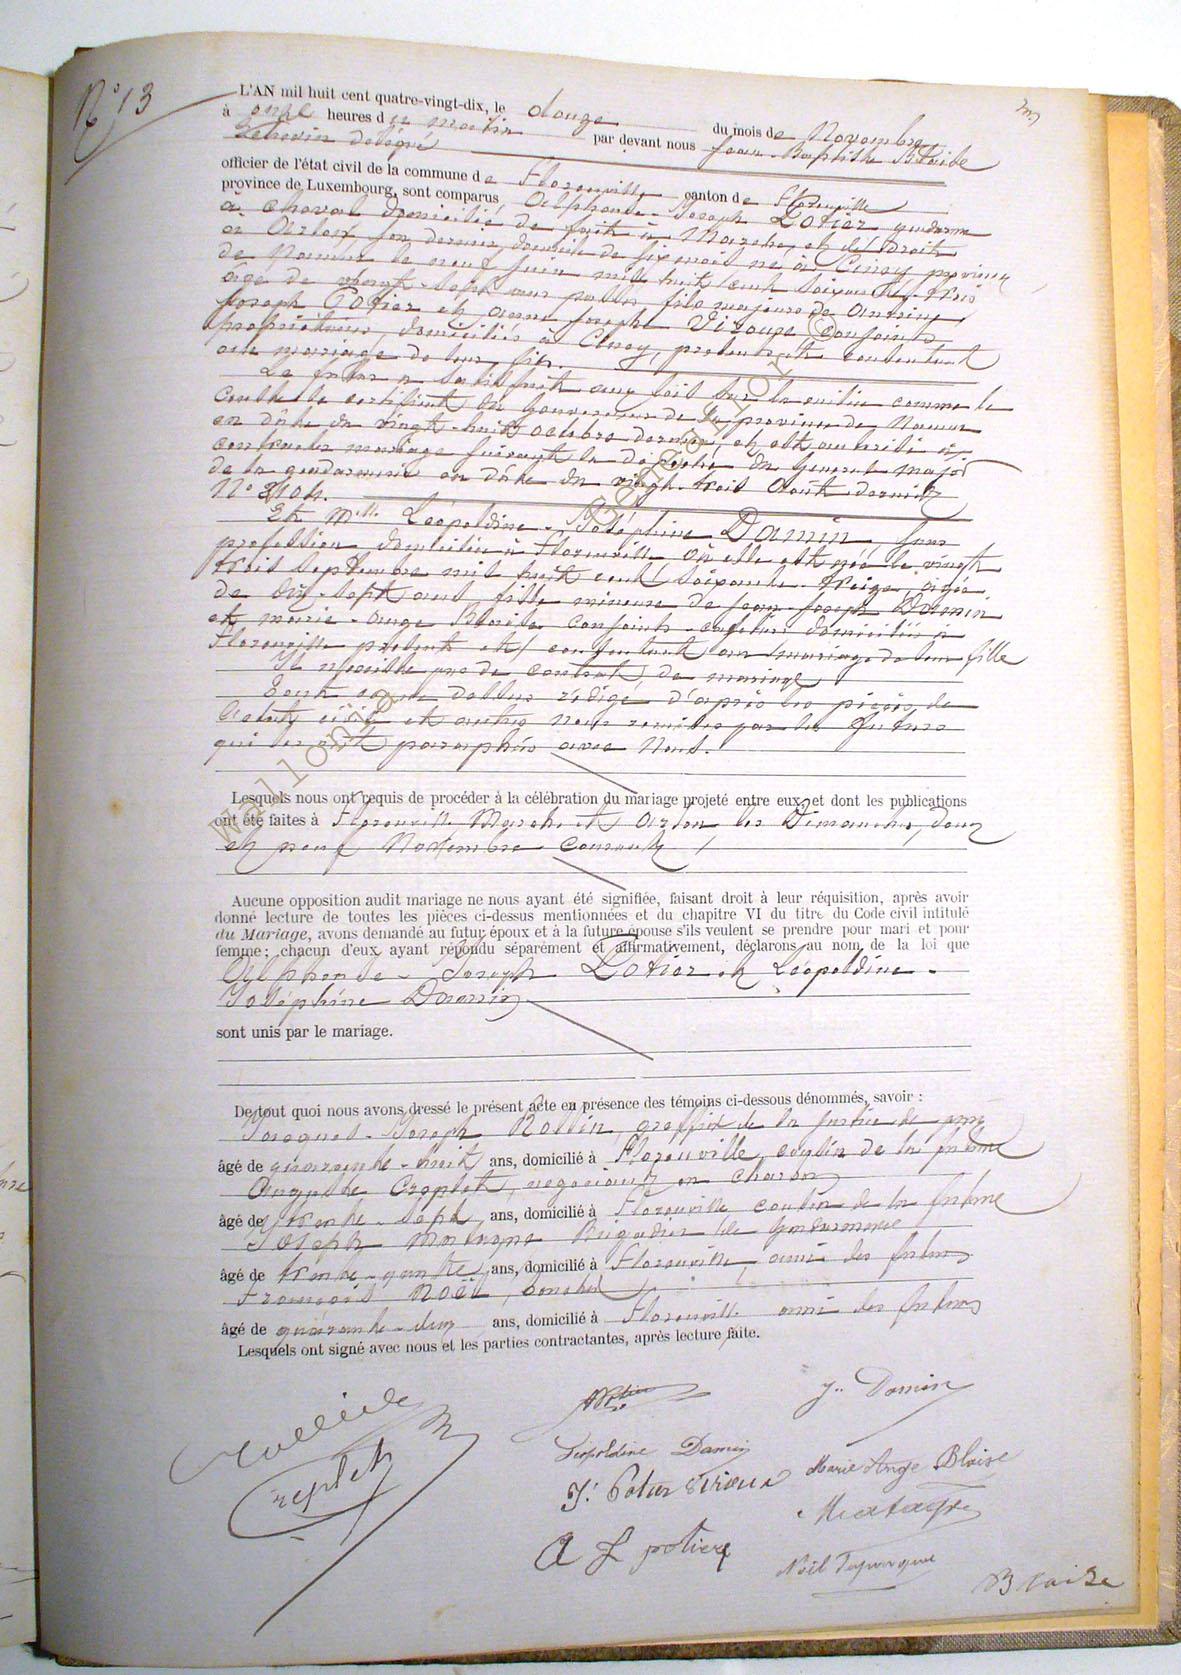 N° 13
L'AN mil huit cent quatre-vingt-dix, le douze du mois de Novembre
à onze heures du matin par devant nous Jean-Baptiste Blaise
Echevin délégué
officier de l'état civil de la commune de Florenville canton de Florenville
province de Luxembourg, sont comparus Alphonse-Joseph Potier gendarme
à cheval domicilié de fait à Marche, et de droit
à Arlon son dernier domicile de six mois né à Ciney province
de Namur le neuf Juin mil huit cent soixante-trois
âgé de vingt-sept ans passés fils majeur de Antoine
Joseph Potier et Anne Josèphe conjoints
propriétaires, domiciliés à Ciney, présents et consentant
au mariage de leur fils.
Le futur a satisfait aux lois sur la milice comme le
constate le certificat du Gouverneur de la province de Namur
en date du vingt-huit octobre dernier, et est autorisé à
contracter mariage suivant la dépêche du Général Major
de la gendarmerie en date du vingt-trois Août dernier
N° 2104.
Et Mlle Léopoldine-Joséphine Damin, sans
profession domiciliée à Florenville où elle est née le vingt
trois Septembre mil huit cent soixante-treize, âgée
de dix-sept ans, fille mineure de Jean-Joseph Damin
et Marie-Ange Blaise conjoints domiciliés à
Florenville présents et consentant au mariage de leur fille
Il n'existe pas de contrat de mariage
Tout ce que dessus rédigé d'après les pièces de
l'état civil et autres nous remises par les futurs
qui les ont paraphées avec Nous.
Lesquels nous ont requis de procéder à la célébration du mariage projeté entre eux, et dont les publications
ont été faites à Florenville Marche et Arlon les Dimanches, deux
et neuf Novembre courant
Aucune opposition audit mariage ne nous ayant été signifiée, faisant droit à leur réquisition, après avoir
donné lecture de toutes les pièces ci-dessus mentionnées et du chapitre VI du titre du Code civil intitulé
du Mariage, avons demandé au futur époux et à la future épouse s'ils veulent se prendre pour mari et pour
femme; chacun d'eux ayant répondu séparément et affirmativement, déclarons au nom de la loi que
Alphonse-Joseph Potier et Léopoldine-
Joséphine Damin
sont unis par le mariage.
De tout quoi nous avons dressé le présent acte en présence des témoins ci-dessous dénommés, savoir :
Joseph greffier de la justice de paix
âgé de quarante-huit ans, domicilié à Florenville, cousin de la future
Auguste Creplet, négociant en charbon
âgé de trente-sept ans, domicilié à Florenville cousin de la future
Joseph Matagne Brigadier de Gendarmerie
âgé de trente-quatre ans, domicilié à Florenville ami des futurs
François Noël
âgé de quarante-deux ans, domicilié à Florenville ami des futurs
Lesquels ont signé avec nous et les parties contractantes, après lecture faite.
J. Damin
Léopoldine Damin
Marie Ange Blaise
Creplet
Matagne
A J potier
Noël
Blaise